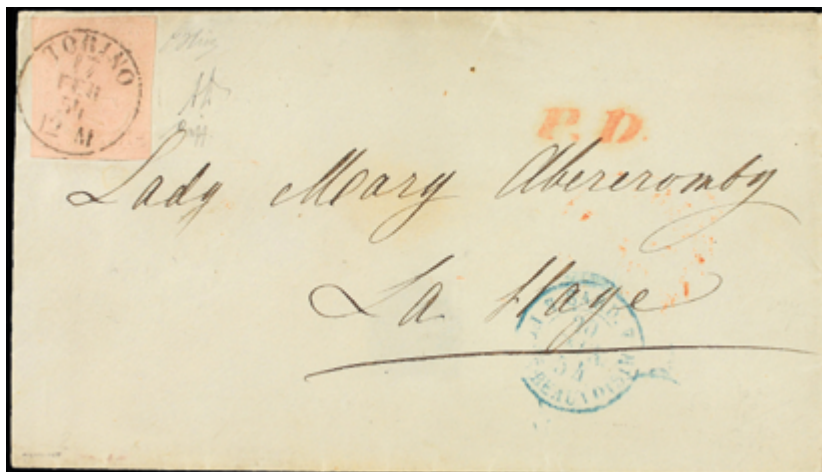 TORINO
17
FEB
54
12 M
P.D.
Lady Mary Abercromby
La Haye
20
54
BEAUVOISIN